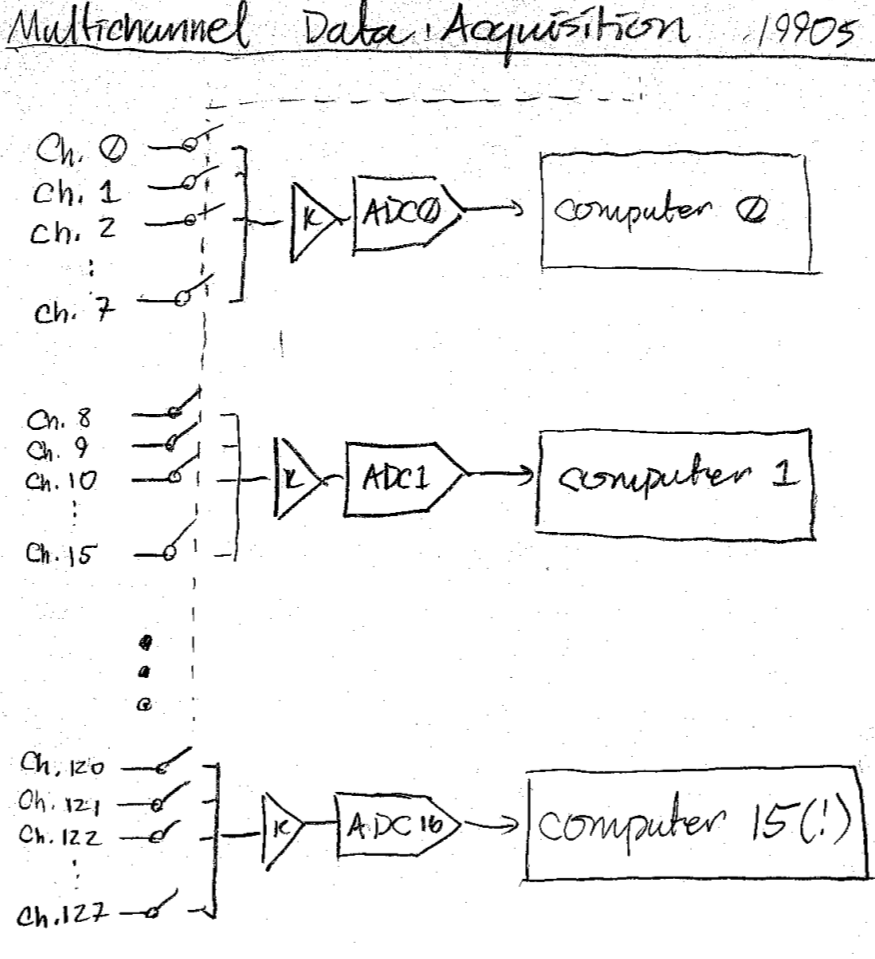 Multichannel Data Acquisition 1990s
Ch. 0
Ch. 1
Ch. 2
Ch. 7
K
ADC0
computer 0
Ch. 8
Ch. 9
Ch. 10
Ch. 15
K
ADC1
computer 1
Ch. 120
Ch. 121
Ch. 122
Ch. 127
K
ADC16
computer 15(!)